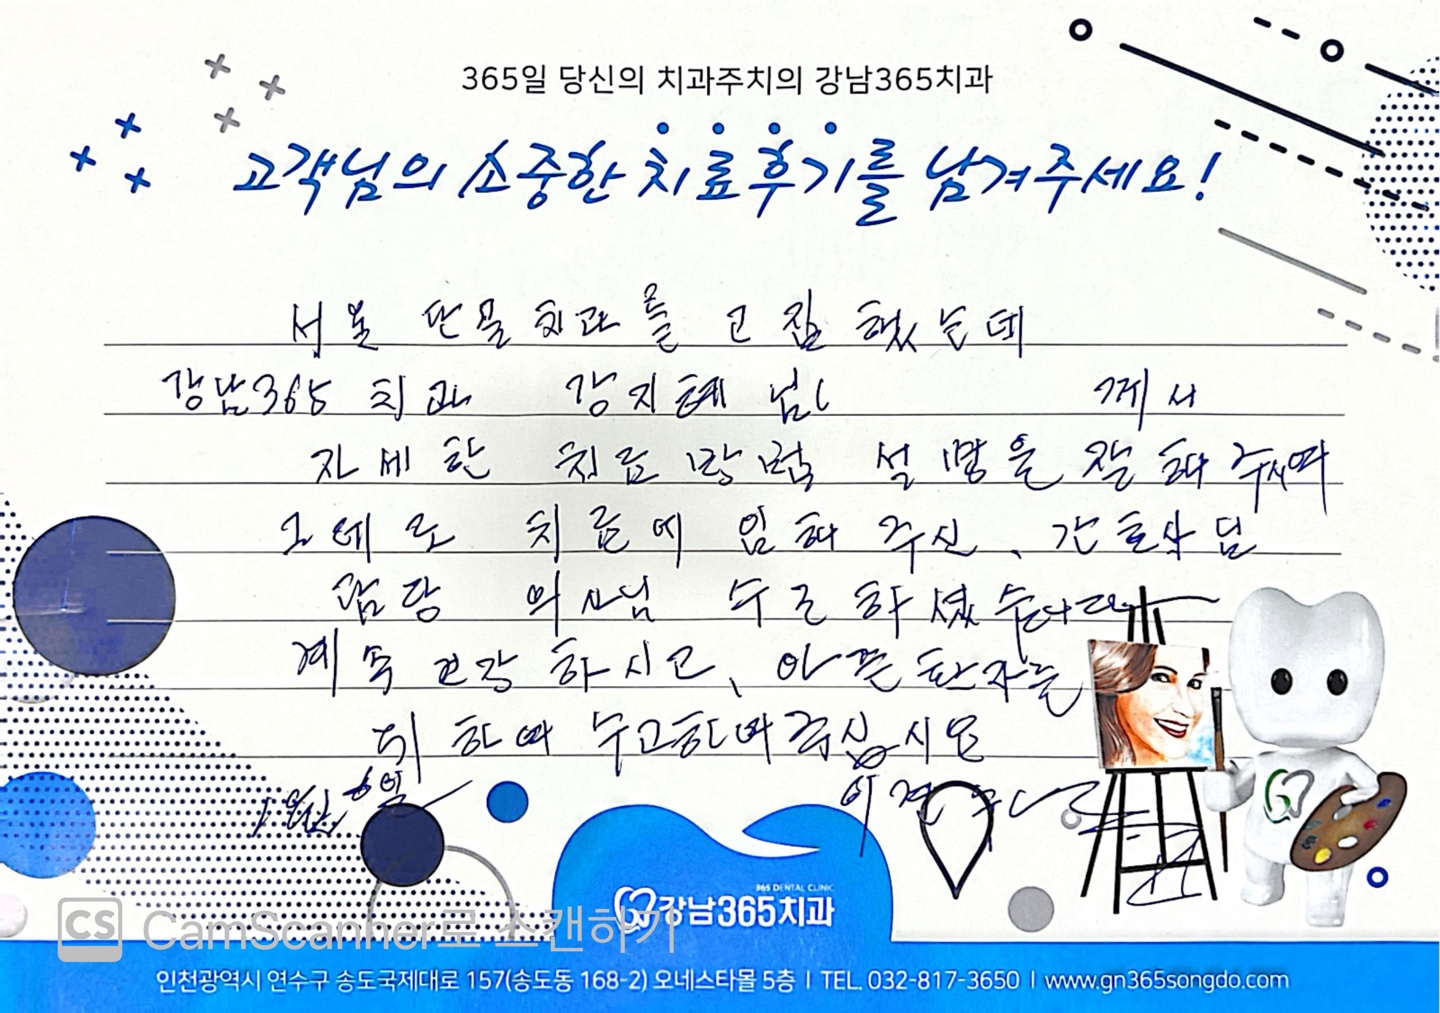 365일 당신의 치과주치의 강남365치과
고객님의 소중한 치료후기를 남겨주세요!
서울 단골치과를 고집 했는데
강남365 치과 강지혜 님 께서
자세한 치료방법 설명을 잘 해 주시며
그데로 치료에 임해 주신, 간호사 님
담당 의사님 수고 하셨습니다
계속 건강 하시고, 아픈 환자를
위 하여 수고하여 주십시요
1월 6일
365 DENTAL CLINIC
강남365치과
CS CamScanner로 스캔하기
인천광역시 연수구 송도국제대로 157(송도동 168-2) 오네스타몰 5층 | TEL. 032-817-3650 | www.gn365songdo.com